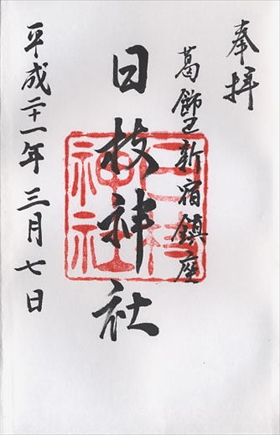 奉拝
葛飾区新宿鎮座
日枝神社
平成二十一年三月七日
日枝
神社